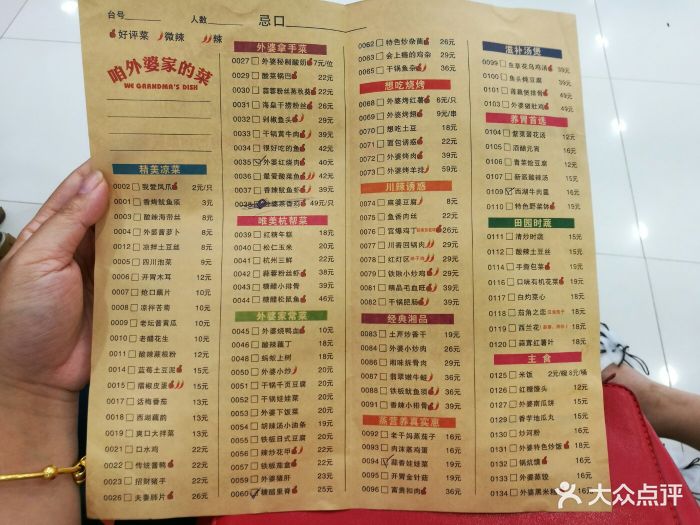 台号 人数 忌口
好评菜 微辣 辣
咱外婆家的菜
WE GRANDMA'S DISH
精美凉菜
0002 我爱凤爪 2元/只
0001 香烤鱿鱼须 3元
0003 酸辣海带丝 8元
0004 外婆酱萝卜 8元
0012 凉拌土豆丝 8元
0005 四川泡菜 9元
0006 开胃木耳 12元
0007 炝口藕片 10元
0008 凉拌苦菊 10元
0009 老坛酱黄瓜 10元
0010 老醋花生 10元
0011 酸辣蕨根粉 12元
0014 蓝莓土豆泥 16元
0015 擂椒皮蛋 15元
0017 话梅番茄 12元
0018 西湖藕韵 13元
0019 爽口大拌菜 13元
0021 口水鸡 22元
0022 传统酱鸭 22元
0023 招财猪手 22元
0026 夫妻肺片 26元
外婆拿手菜
0027 外婆秘制酸奶 7元/位
0029 酸菜锅巴 22元
0030 蒜蓉粉丝蒸玫葵 22元
0031 海皇干捞粉丝 26元
0032 剁椒鱼头 39元
0033 干锅黄牛肉 39元
0034 很好吃的鱼 42元
0035 外婆红烧肉 40元
0036 最爱酸菜鱼 42元
0037 香辣鱿鱼虾 46元
0038 外婆茶香鸡 49元/只
唯美杭帮菜
0039 红糖年糕 18元
0040 松仁玉米 20元
0041 杭州三鲜 22元
0042 蒜蓉粉丝虾 38元
0043 糖醋小排骨 39元
0044 糖醋松鼠鱼 46元
外婆家常菜
0045 外婆烧鸭血 10元
0046 酸辣藕丁 18元
0048 蚂蚁上树 18元
0050 外婆小炒 21元
0051 干锅千页豆腐 20元
0052 干锅娃娃菜 20元
0053 外婆下饭菜 20元
0054 胡辣汤小油条 19元
0055 铁板日式豆腐 20元
0056 辣炒花甲 20元
0057 铁板茄盒 22元
0059 外婆猪肝 23元
0060 糖醋里脊 25元
0062 特色炒杂菌 26元
0063 会上瘾的鸡杂 29元
0065 干锅鱼杂 36元
想吃烧烤
0068 外婆烤红薯 6元/只
0069 外婆烤翅 9元/串
0070 想吃土豆 18元
0071 面包诱惑 23元
0072 外婆烤肉 39元
0073 外婆烤鱼 39元
川辣诱惑
0074 麻婆豆腐 10元
0075 鱼香肉丝 22元
0076 宫爆鸡丁 26元
0077 川香回锅肉 29元
0078 红灯区 39元
0079 铁锹小炒鸡 29元
0081 精品毛血旺 39元
0082 干锅肥肠 39元
经典湘品
0083 土芹炒香干 16元
0084 外婆小炒肉 25元
0086 湘味烧骨肉 29元
0087 翡翠嫩牛蛙 36元
0088 铁板鱿鱼须 36元
0091 香辣小排骨 39元
蒸营养真实惠
0092 老干妈蒸茄子 16元
0093 肉沫蒸鸡蛋 16元
0094 蒜香娃娃菜 16元
0095 开胃金针菇 19元
0096 富贵扣肉 36元
滋补汤煲
0099 鱼享花乌鸡汤 39元
0100 鱼头炖豆腐 39元
0101 莲藕煲排骨 49元
0103 外婆猪肚鸡 49元
养胃首选
0104 紫菜蛋花汤 12元
0105 酒酿元宵 16元
0106 青菜烩豆腐 12元
0107 新派酸辣汤 15元
0109 西湖牛肉羹 16元
0110 特色野菜饼 19元
田园时蔬
0111 清炒时蔬 15元
0112 酸辣土豆丝 15元
0114 手撕包菜 19元
0116 口味有机花菜 19元
0117 白灼菜心 19元
0118 茄角之恋 19元
0119 西兰花 19元
0120 蒜茸红薯叶 18元
主食
0125 米饭 2元/碗 8元/桶
0126 红糖馒头 12元
0127 外婆南瓜饼 15元
0129 香芋地瓜丸 15元
0131 外婆特色炒饭 16元
0132 锅炕馍 16元
0133 外婆蒸饺 16元
0134 外婆黑米粉 16元
大众点评